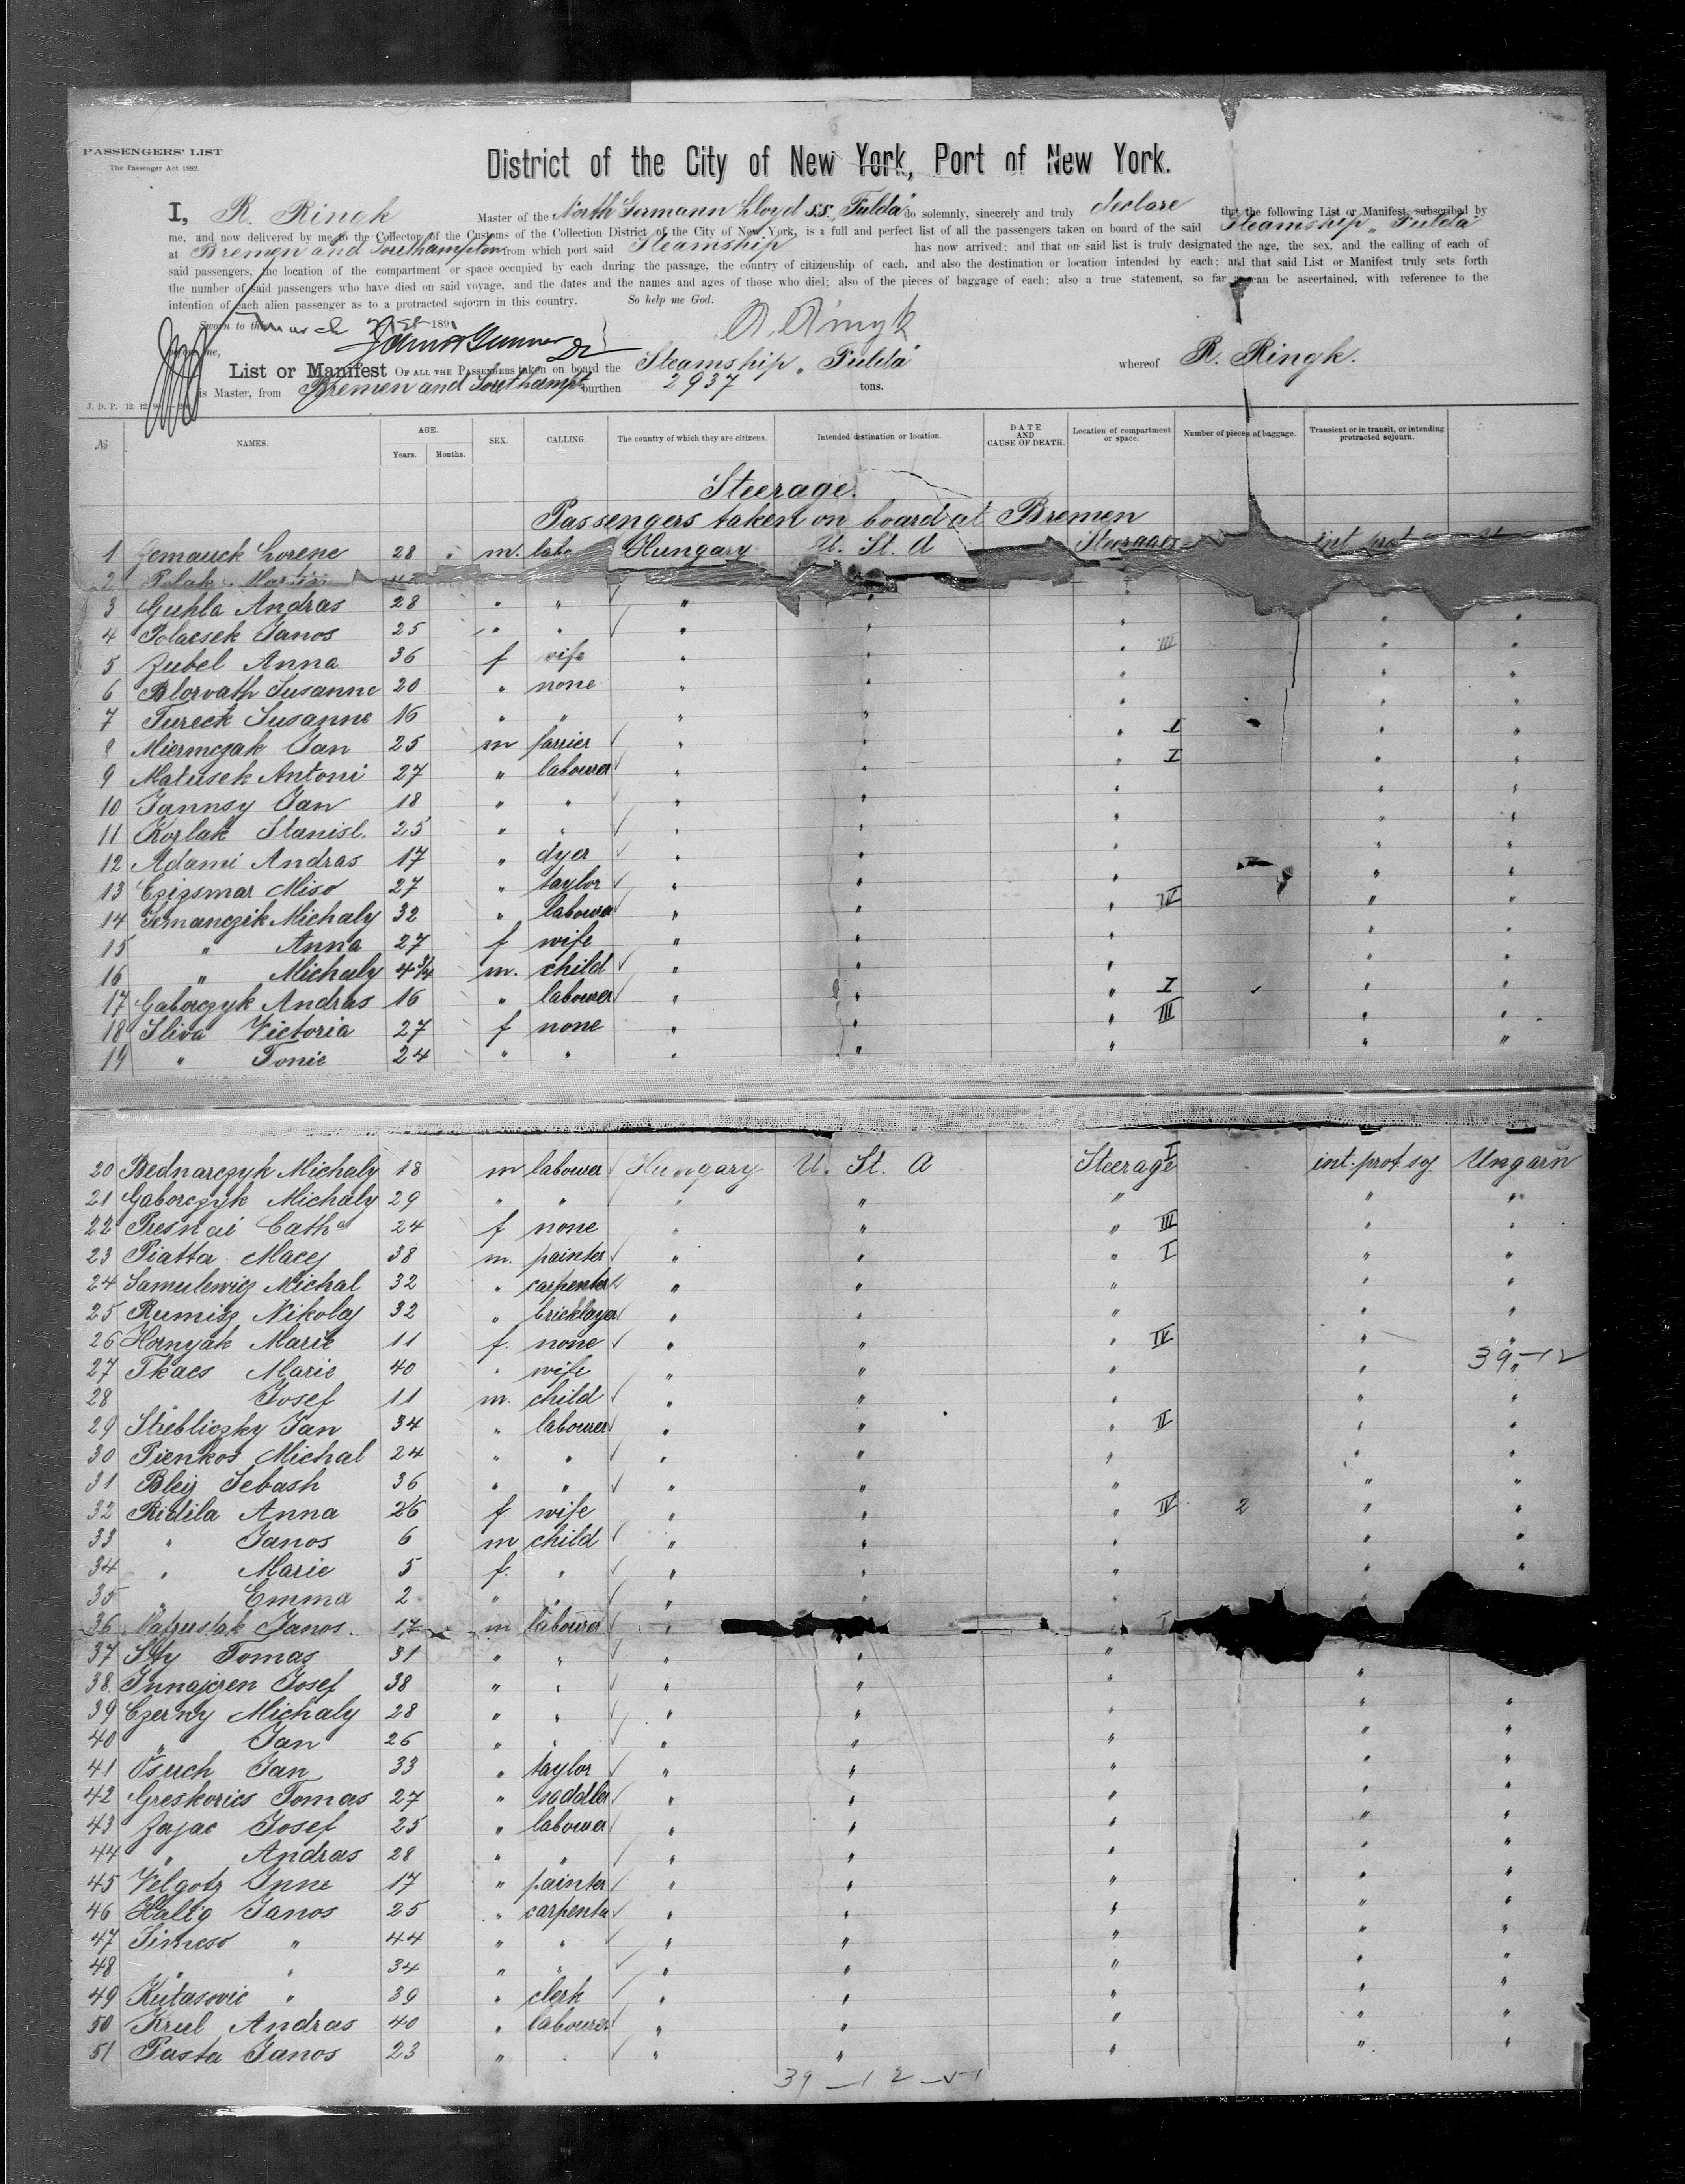 PASSENGERS' LIST
The Passenger Act 1882.
District of the City of New York, Port of New York.
I, R. Ringk Master of the North Germann Lloyd S.S. „Fulda" do solemnly, sincerely and truly declare that the following List or Manifest, subscribed by
me, and now delivered by me to the Collector of the Customs of the Collection District of the City of New York, is a full and perfect list of all the passengers taken on board of the said Steamship „Fulda"
at Bremen and Southampton from which port said Steamship has now arrived; and that on said list is truly designated the age, the sex, and the calling of each of
said passengers, the location of the compartment or space occupied by each during the passage, the country of citizenship of each, and also the destination or location intended by each; and that said List or Manifest truly sets forth
the number of said passengers who have died on said voyage, and the dates and the names and ages of those who died; also of the pieces of baggage of each; also a true statement, so far as can be ascertained, with reference to the
intention of each alien passenger as to a protracted sojourn in this country. So help me God.
Sworn to this March 21st 1891 R. Ringk
List or Manifest OF ALL THE PASSENGERS taken on board the Steamship „Fulda" whereof R. Ringk.
is Master, from Bremen and Southampt burthen 2937 tons.
J. D. P. 12. 12.
№ NAMES. AGE. Years. Months. SEX. CALLING. The country of which they are citizens. Intended destination or location. DATE AND CAUSE OF DEATH. Location of compartment or space. Number of pieces of baggage. Transient or in transit, or intending protracted sojourn.
Steerage.
Passengers taken on board at Bremen
1 Jemauck Lorenc 28 " m. labo Hungary U. St. A Steerage int. prot
2 Polak Martin
3 Guhla Andras 28 " " " " "
4 Polacsek Janos 25 " " " " " " "
5 Zubel Anna 36 f wife " " " III " "
6 Blorvath Susanne 20 " none " " " " "
7 Tureck Susanne 16 " " " " " " "
8 Miermczak Jan 25 m farrier " " " I " "
9 Matusek Antoni 27 " labourer " " " I " "
10 Jannsy Jan 18 " " " " " " "
11 Kozlak Stanisl. 25 " " " " " " "
12 Adami Andras 17 " dyer " " " " "
13 Czizsmar Miso 27 " taylor " " " " "
14 Semanczik Michaly 32 " laboura " " " IV " "
15 " Anna 27 f wife " " " " "
16 " Michaly 4 3/4 m. child " " " " "
17 Gaborczyk Andras 16 " labourer " " " I " "
18 Sliva Victoria 27 f none " " " III " "
19 " Tonie 24 " " " " " " "
20 Bednarczyk Michaly 18 m labourer Hungary U. St. A Steerage I int. prot. soj. Ungarn
21 Gaborczyk Michaly 29 " " " " " " "
22 Presnai Cath^a 24 f none " " " III " "
23 Piatta Macej 38 m. painter " " " I " "
24 Samulewicz Michal 32 " carpenter " " " " "
25 Rumisz Nikolaj 32 " bricklayer " " " " "
26 Hornyak Marie 11 f. none " " " IV " "
27 Tkacs Marie 40 " wife " " " " " 39-12
28 " Josef 11 m. child " " " " "
29 Stiebliczky Jan 34 " labourer " " " II " "
30 Pienkos Michal 24 " " " " " " "
31 Bleij Sebash 36 " " " " " " "
32 Ridila Anna 26 f wife " " " IV 2 " "
33 " Janos 6 m child " " " " "
34 " Marie 5 f. " " " " " "
35 " Emma 2 " " " " " "
36 Matzustak Janos. 17 m labourer " " I
37 Sty Tomas 31 " " " " " "
38 Innajczen Josef 38 " " " " " "
39 Czerny Michaly 28 " " " " " " "
40 " Jan 26 " " " " " " "
41 Osuch Jan 33 " taylor " " " " "
42 Greskovics Tomas 27 " saddler " " " " "
43 Zajac Josef 25 " labourer " " " " "
44 " Andras 28 " " " " " " "
45 Velgotz Inne 17 " painter " " " " "
46 Halig Janos 25 " carpenta " " " " "
47 Simcso " 44 " " " " " " "
48 " " 34 " " " " " " "
49 Kutasovic " 39 " clerk " " " " "
50 Krul Andras 40 " labourer " " " " "
51 Pasta Janos 23 " " " " " " "
39-12-51